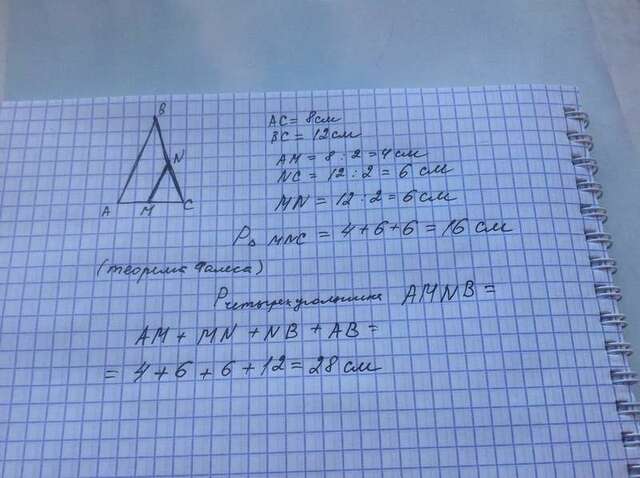 B
N
A M C
AC = 8 см
BC = 12 см
AM = 8 : 2 = 4 см
NC = 12 : 2 = 6 см
MN = 12 : 2 = 6 см
P△ MNC = 4 + 6 + 6 = 16 см
(теорема Фалеса)
Pчетырехугольника AMNB =
AM + MN + NB + AB =
= 4 + 6 + 6 + 12 = 28 см